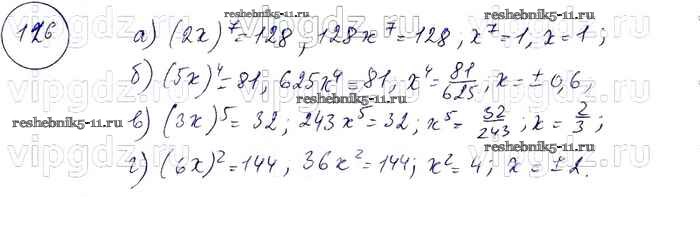 126
а) (2x)⁷=128, 128x⁷=128, x⁷=1, x=1;
б) (5x)⁴=81, 625x⁴=81, x⁴=81/625, x=±0,6;
в) (3x)⁵=32; 243x⁵=32; x⁵=32/243; x=2/3;
г) (6x)²=144, 36x²=144; x²=4; x=±2.
reshebnik5-11.ru
reshebnik5-11.ru
reshebnik5-11.ru
reshebnik5-11.ru
reshebnik5-11.ru
vipgdz.com